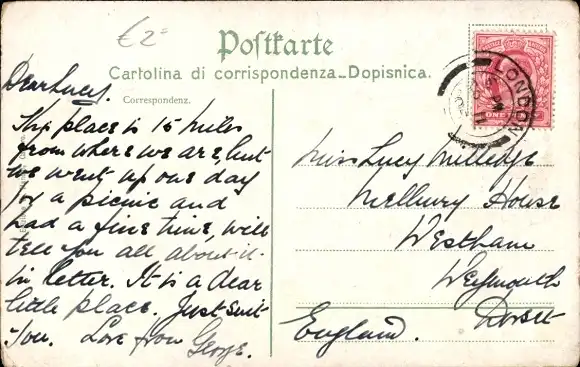 €2=
Postkarte
Cartolina di corrispondenza_Dopisnica.
Correspondenz.
LONDON
ONE
Dear Lucy.
This place is 15 miles
from where we are, but
we went up one day
for a picnic and
had a fine time, will
tell you all about it
in letter. It is a dear
little place. Just suit
you. Love from George.
Miss Lucy Milledge
Melbury House
Westham
Weymouth
Dorset
England.